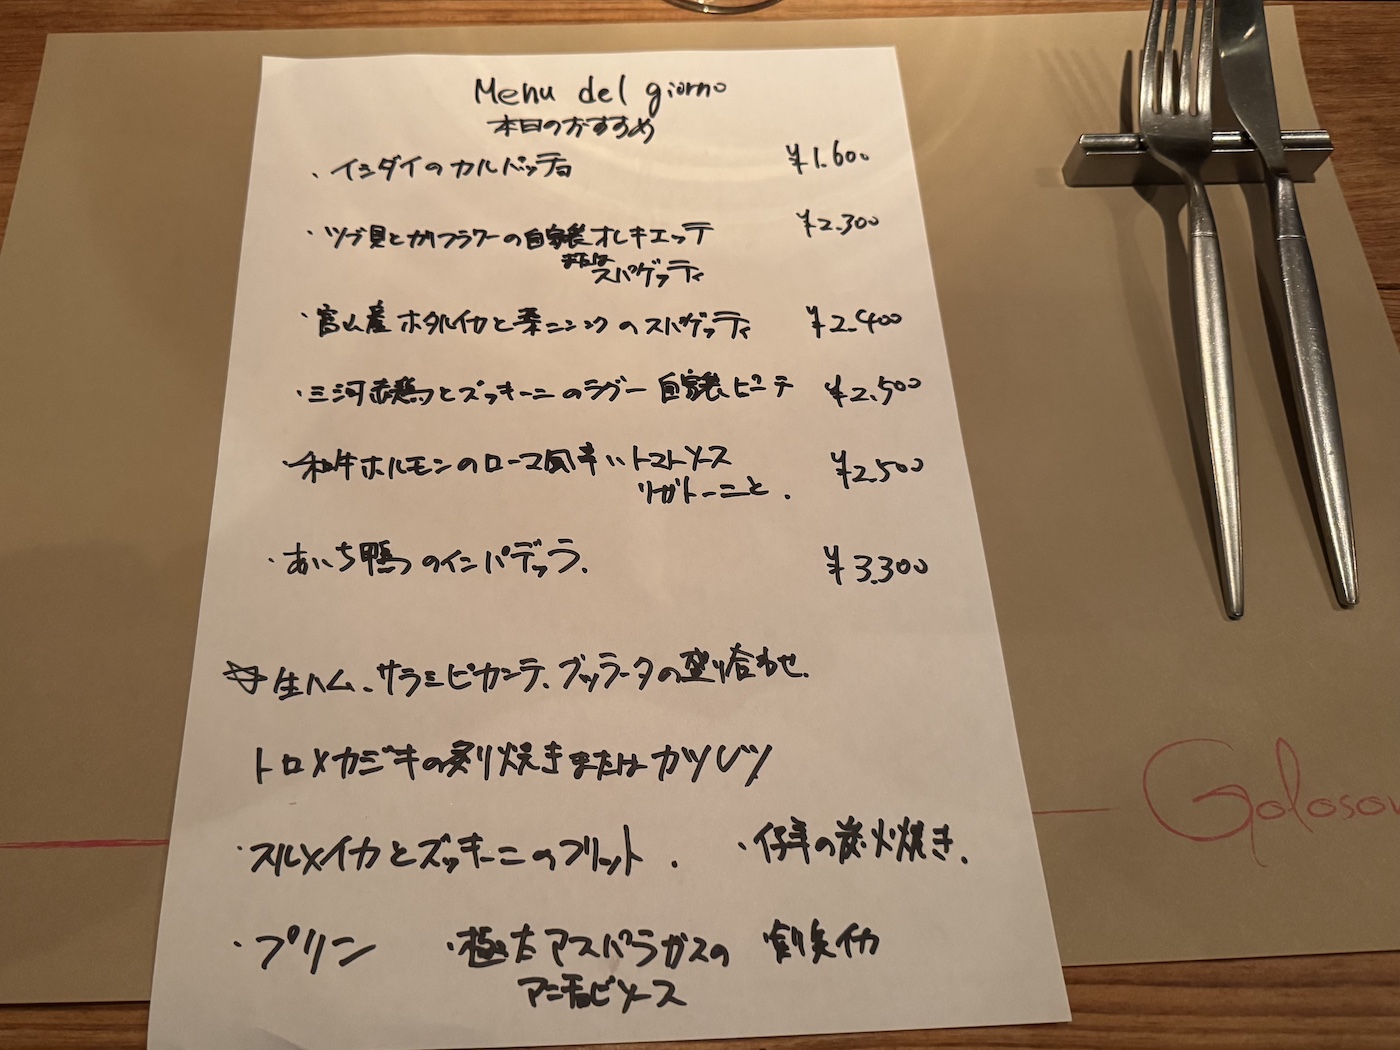 Menu del giorno
本日のおすすめ
・イシダイのカルパッチョ ¥1.600
・ツブ貝とカリフラワーの自家製オレキエッテ ¥2.300
または
スパゲッティ
・富山産ホタルイカと葉ニンニクのスパゲッティ ¥2.400
・三河赤鶏とズッキーニのラグー 自家製ピーチ ¥2.500
・和牛ホルモンのローマ風辛いトマトソース ¥2.500
リガトーニと.
・あいち鴨のインパデッラ. ¥3.300
☆生ハム、サラミピカンテ、ブッラータの盛り合わせ.
トロメカジキの炙り焼きまたはカツレツ
・スルメイカとズッキーニのフリット. ・仔羊の炭火焼き.
・プリン ・極太アスパラガスの
アンチョビソース
Goloso